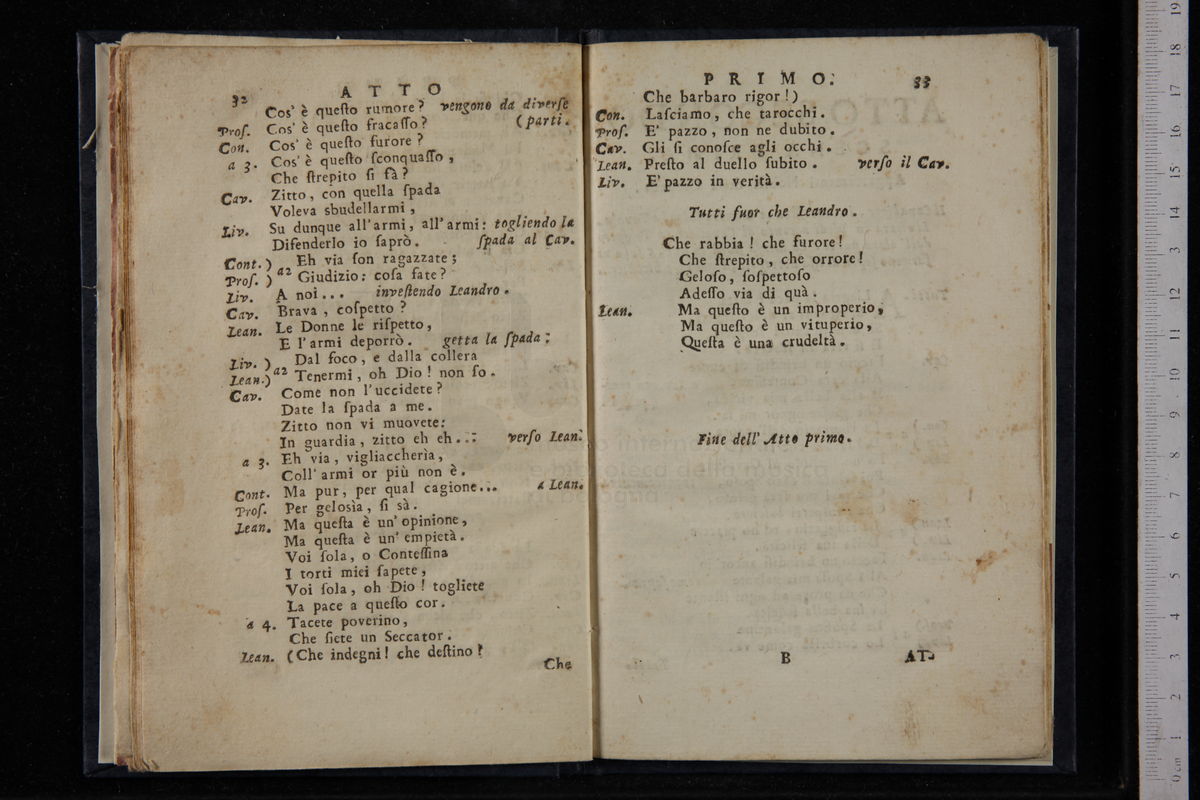 32 ATTO
Cos' è queſto rumore? vengono da diverſe
Prof. Cos' è queſto fracaſſo? (parti.
Con. Cos' è queſto furore?
a 3. Cos' è queſto ſconquaſſo,
Che ſtrepito ſi fà?
Cav. Zitto, con quella ſpada
Voleva sbudellarmi,
Liv. Su dunque all'armi, all'armi: togliendo la
Difenderlo io ſaprò. ſpada al Cav.
Cont.) Eh via ſon ragazzate;
Prof. ) a2 Giudizio: coſa fate?
Liv. A noi... inveſtendo Leandro.
Cav. Brava, coſpetto?
Lean. Le Donne le riſpetto,
E l'armi deporrò. getta la ſpada:
Liv. ) Dal foco, e dalla collera
Lean.) a2 Tenermi, oh Dio! non ſo.
Cav. Come non l'uccidete?
Date la ſpada a me.
Zitto non vi muovete:
In guardia, zitto eh eh... verſo Lean.
a 3. Eh via, vigliaccherìa,
Coll' armi or più non è.
Cont. Ma pur, per qual cagione... a Lean.
Prof. Per geloſìa, ſi sà.
Lean. Ma queſta è un' opinione,
Ma queſta è un' empietà.
Voi ſola, o Conteſſina
I torti miei ſapete,
Voi ſola, oh Dio! togliete
La pace a queſto cor.
a 4. Tacete poverino,
Che ſiete un Seccator.
Lean. (Che indegni! che deſtino!
Che
PRIMO. 33
Che barbaro rigor!)
Con. Laſciamo, che tarocchi.
Prof. E' pazzo, non ne dubito.
Cav. Gli ſi conoſce agli occhi.
Lean. Preſto al duello ſubito. verſo il Cav.
Liv. E' pazzo in verità.
Tutti fuor che Leandro.
Che rabbia! che furore!
Che ſtrepito, che orrore!
Geloſo, ſoſpettoſo
Adeſſo via di quà.
Lean. Ma queſto è un improperio,
Ma queſto è un vituperio,
Queſta è una crudeltà.
Fine dell' Atto primo.
B AT-